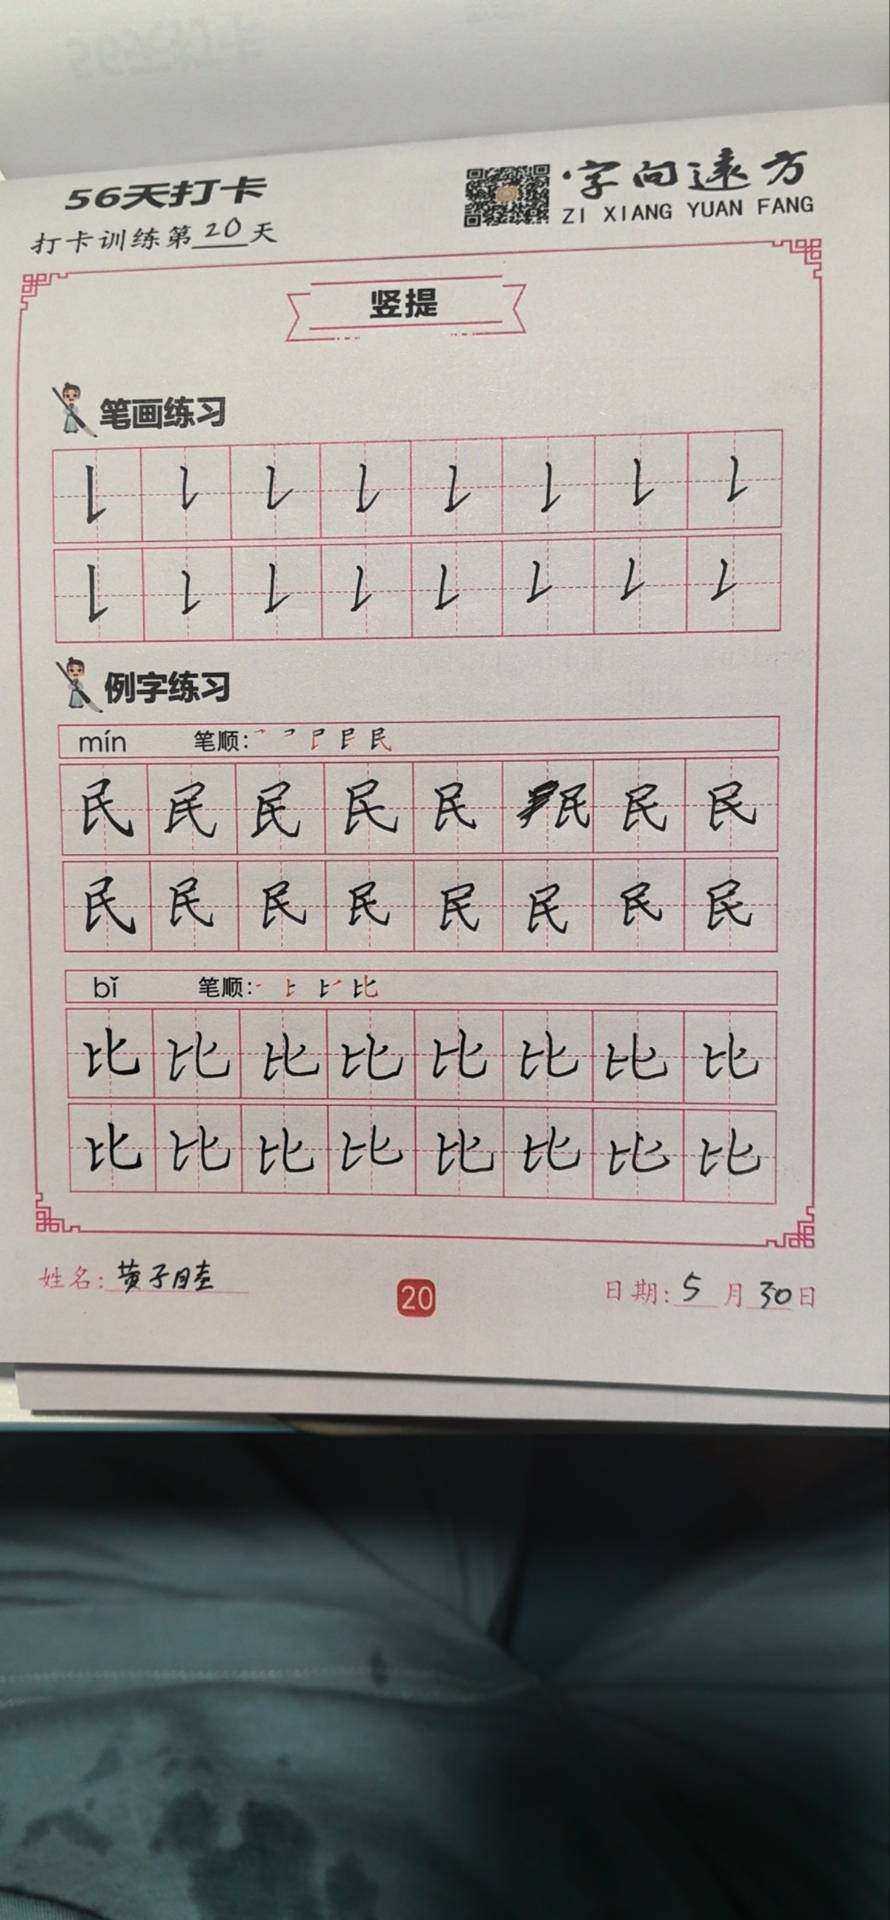 56天打卡
字向遠方
ZI XIANG YUAN FANG
打卡训练第20天
竖提
笔画练习
例字练习
mín 笔顺:
民 民 民 民 民 民 民 民
民 民 民 民 民 民 民 民
bǐ 笔顺:
比 比 比 比 比 比 比 比
比 比 比 比 比 比 比 比
姓名: 黄子睦
20
日期: 5月30日